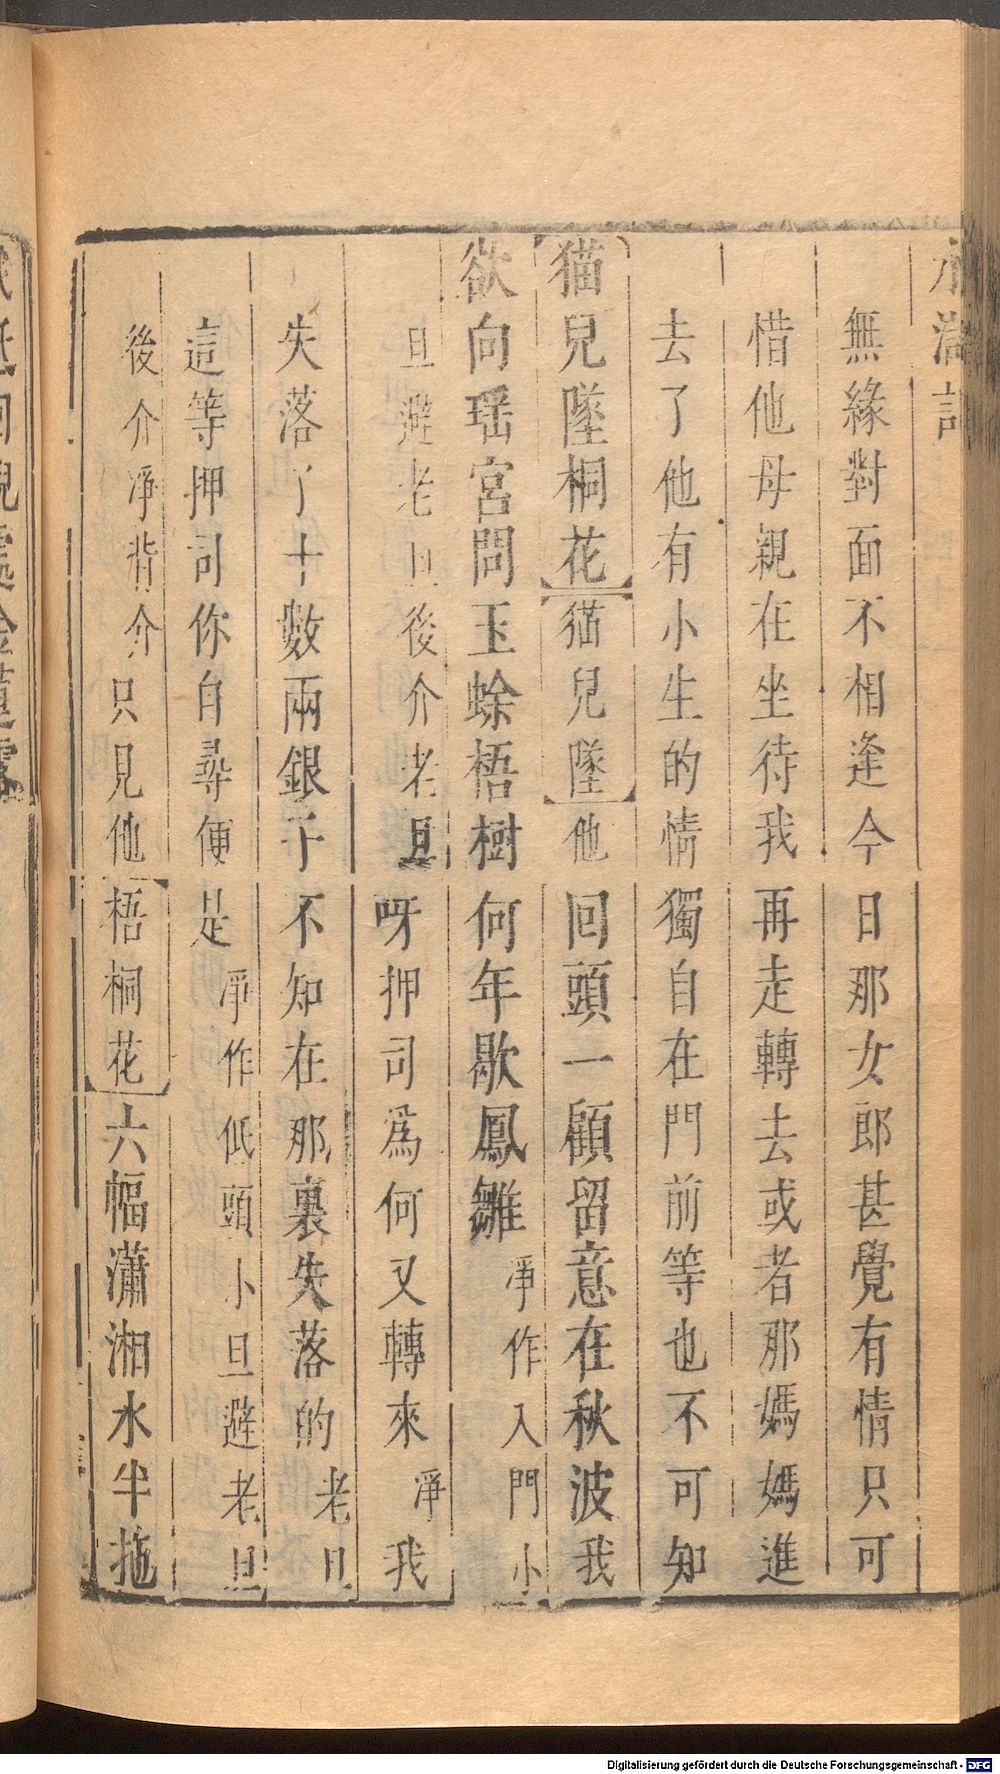 水滸記
無緣對面不相逢今日那女郎甚覺有情只可
惜他母親在坐待我再走轉去或者那媽媽進
去了他有小生的情獨自在門前等也不可知
猫兒墜桐花猫兒墜他回頭一顧留意在秋波我
欲向瑶宮問玉蜍梧樹何年歇鳳雛淨作入門小
旦避老旦後介老旦呀押司爲何又轉來淨我
失落了十數兩銀子不知在那裏失落的老旦
這等押司你自尋便是淨作低頭小旦避老旦
後介淨背介只見他梧桐花六幅瀟湘水半拖
Digitalisierung gefördert durch die Deutsche Forschungsgemeinschaft - DFG